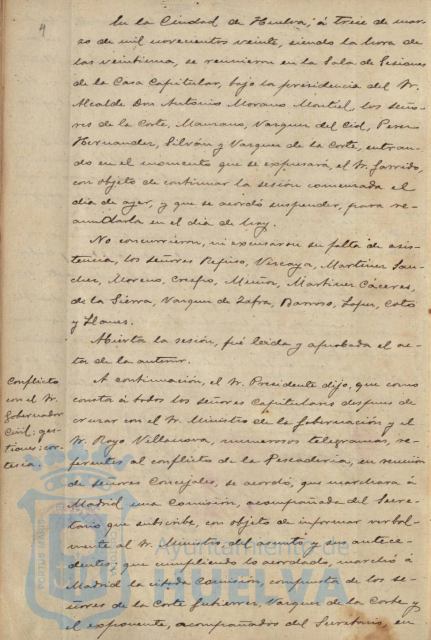 4
En la Ciudad de Huelva, á trece de mar-
zo de mil novecientos veinte, siendo la hora de
las veintiuna, se reunieron en la Sala de Sesiones
de la Casa Capitular, bajo la presidencia del Sr.
Alcalde Don Antonio Morano Montiel, los seño-
res de la Corte, Maurano, Vazquez del Cid, Perez
Hernandez, Silván y Vazquez de la Corte, entran-
do en el momento que se expresará, el Sr. Garrido,
con objeto de continuar la sesión comenzada el
dia de ayer, y que se acordó suspender, para re-
anudarla en el dia de hoy.
No concurrieron, ni excusaron su falta de asis-
tencia, los señores Vizcaya, Martinez San-
chez, Moreno, Crespo, Muñoz, Martinez Cáceres,
de la Sierra, Vazquez de Zafra, Barroso, Lopez, Coto
y Llanes.
Abierta la sesión, fué leida y aprobada el ac-
ta de la anterior.
Conflicto
con el Sr.
Gobernador
Civil: ges-
tiones: cor-
tesia.
A continuación, el Sr. Presidente dijo, que como
consta á todos los señores Capitulares despues de
cruzar con el Sr. Ministro de la Gobernación y el
Sr. Royo Villanova, numerosos telegramas, re-
ferentes al conflicto de la Pescaderia, en reunión
de señores Concejales, se acordó, que marchara á
Madrid una Comisión, acompañada del Secre-
tario que suscribe, con objeto de informar verbal-
mente al Sr. Ministro del asunto y sus antece-
dentes; que cumpliendo lo acordado, marchó á
Madrid la citada Comisión, compuesta de los se-
ñores de la Corte Gutierrez, Vazquez de la Corte y
el exponente, acompañados del Secretario, en
Ayuntamiento de
HUELVA